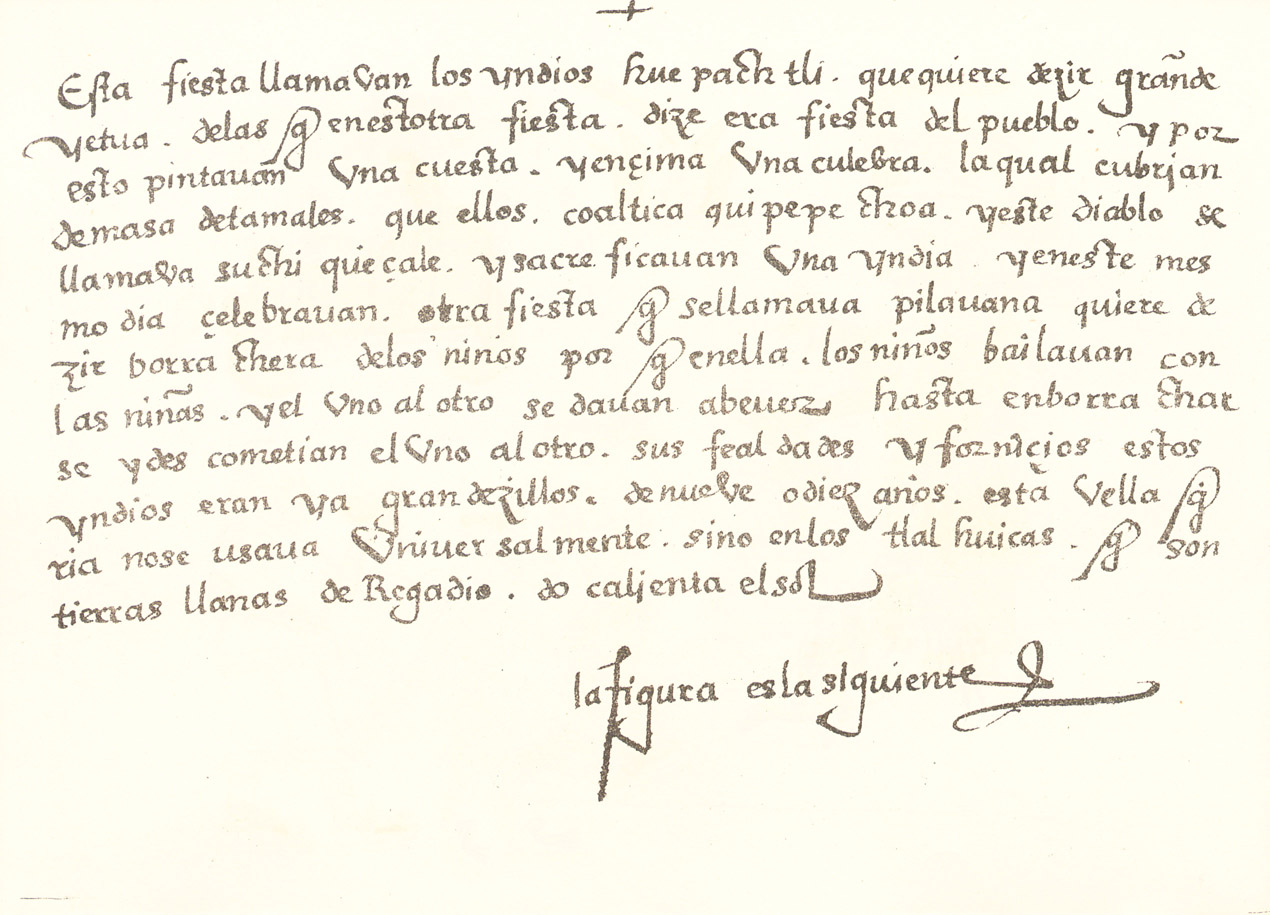 Esta fiesta llamavan los yndios huepachtli. que quiere dezir grãnde
yetua. delas q̃ enestotra fiesta. dize era fiesta del pueblo. y por
esto pintauan vna cuesta. yençima vna culebra. laqual cubrjan
demasa detamales. que ellos. coaltica quipepechoa. yeste diablo se
llamava suchi queçale. ysacreficauan vna yndia yeneste mes
mo dia çelebrauan. otra fiesta q̃ sellamaua pilauana quiere de
zir borrachera delos niños por q̃ enella. los niños bailauan con
las niñas. yel vno al otro se dauan abeuer hasta enborrachar
se ydes cometian el vno al otro. sus fealdades y fornicios estos
yndios eran ya grandezillos. denueve odiez años. esta vella q̃
ria nose usaua vniuersalmente. sino enlos tlalhuicas. q̃ son
tierras llanas de Regadio. do calienta elsol
lafigura esla siguiente